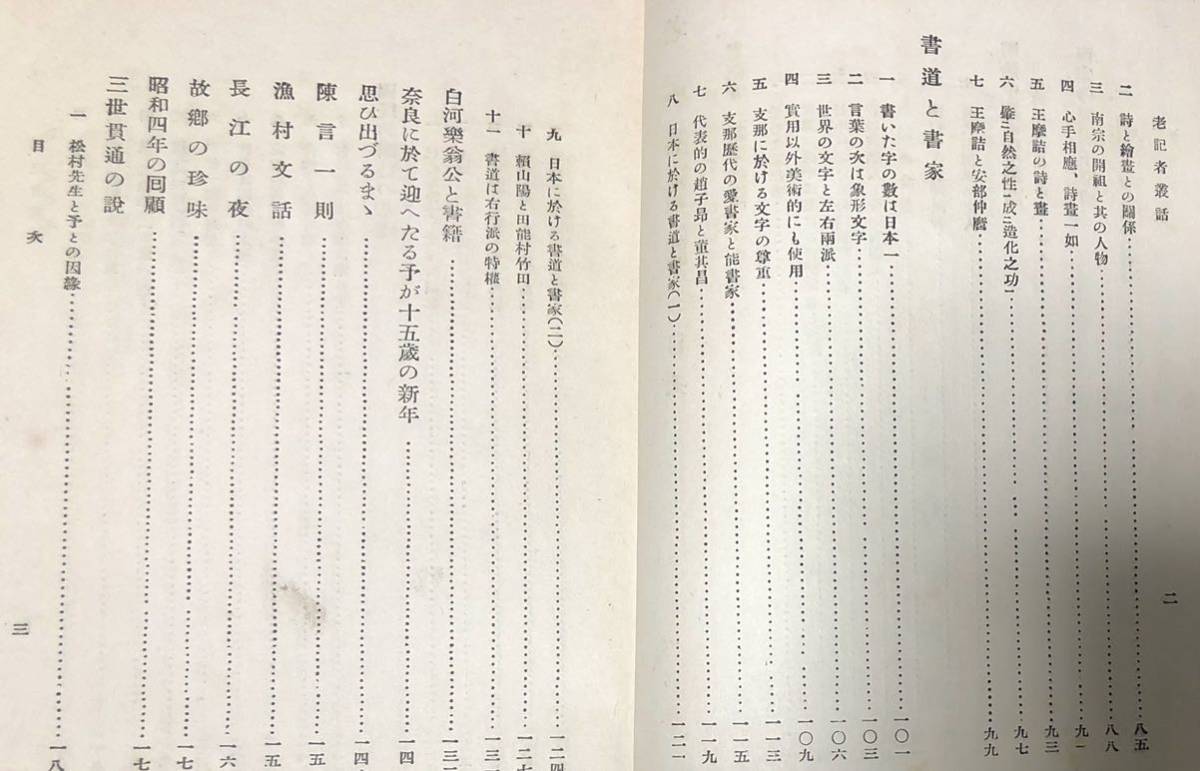 老記者叢話
二 詩と繪畫との關係 八五
三 南宗の開祖と其の人物 八八
四 心手相應、詩畫一如 九一
五 王摩詰の詩と畫 九三
六 肇ニ自然之性一成ニ造化之功一 九七
七 王摩詰と安部仲麿 九九
書道と書家
一 書いた字の數は日本一 一〇一
二 言葉の次は象形文字 一〇三
三 世界の文字と左右兩派 一〇六
四 實用以外美術的にも使用 一〇九
五 支那に於ける文字の尊重 一一三
六 支那歷代の愛書家と能書家 一一五
七 代表的の趙子昂と董其昌 一一九
八 日本に於ける書道と書家(一) 一二一
二
九 日本に於ける書道と書家(二) 一二四
十 賴山陽と田能村竹田 一二七
十一 書道は右行派の特權 一三
白河樂翁公と書籍 一三
奈良に於て迎へたる予が十五歲の新年 一四
思ひ出づるまゝ 一四
陳言一則 一五
漁村文話 一五
長江の夜 一六
故鄕の珍味 一七
昭和四年の回顧 一七
三世貫通の說
一 松村先生と予との因緣 一八
目次
三